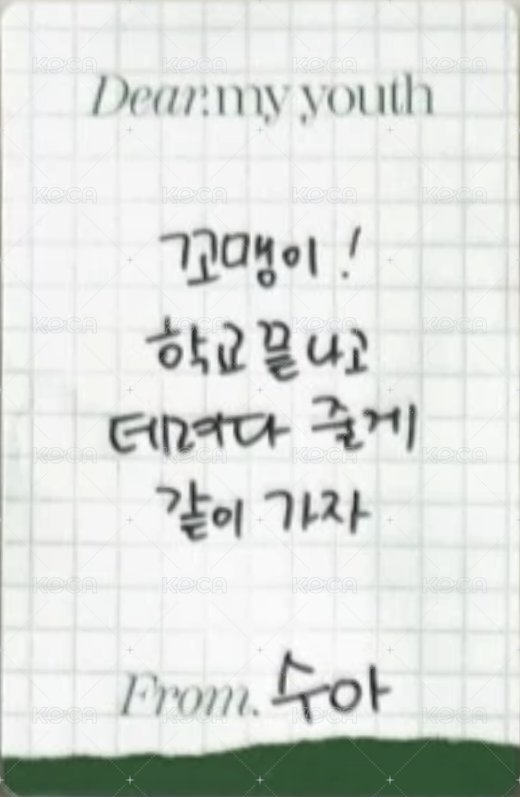 Dear.my youth
꼬맹이!
학교 끝나고
데려다 줄게
같이 가자
From. 수아